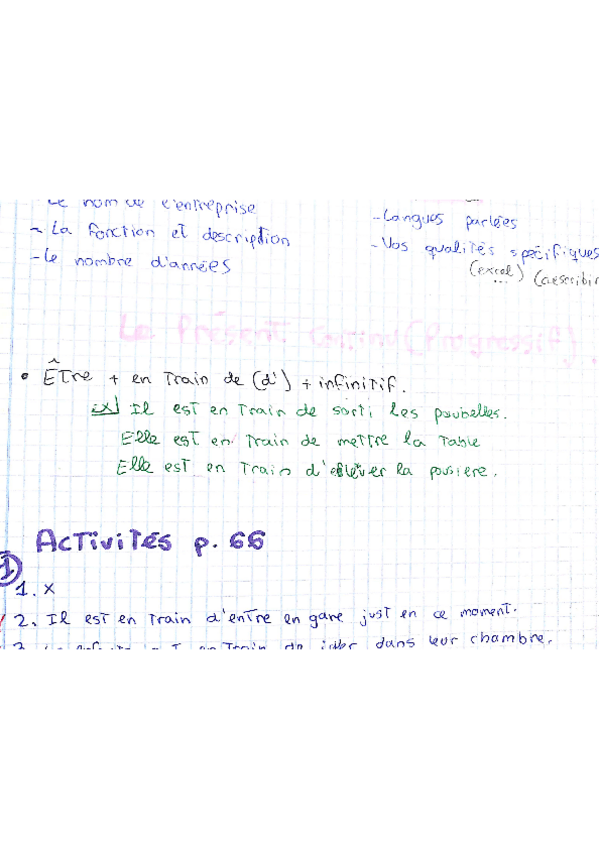 Le nom de l'entreprise
- La fonction et description
- Le nombre d'années
- Langues parlées
- Vos qualités spécifiques
(excel)
...
Le Présent Continu (Progressif).
• Être + en train de (d') + infinitif.
ex) Il est en train de sorti les poubelles.
Elle est en train de mettre la table
Elle est en train d'enlever la pousiere.
Activités p. 66
1
1. x
2. Il est en train d'entre en gare just en ce moment.
3. en train de dans leur chambre.